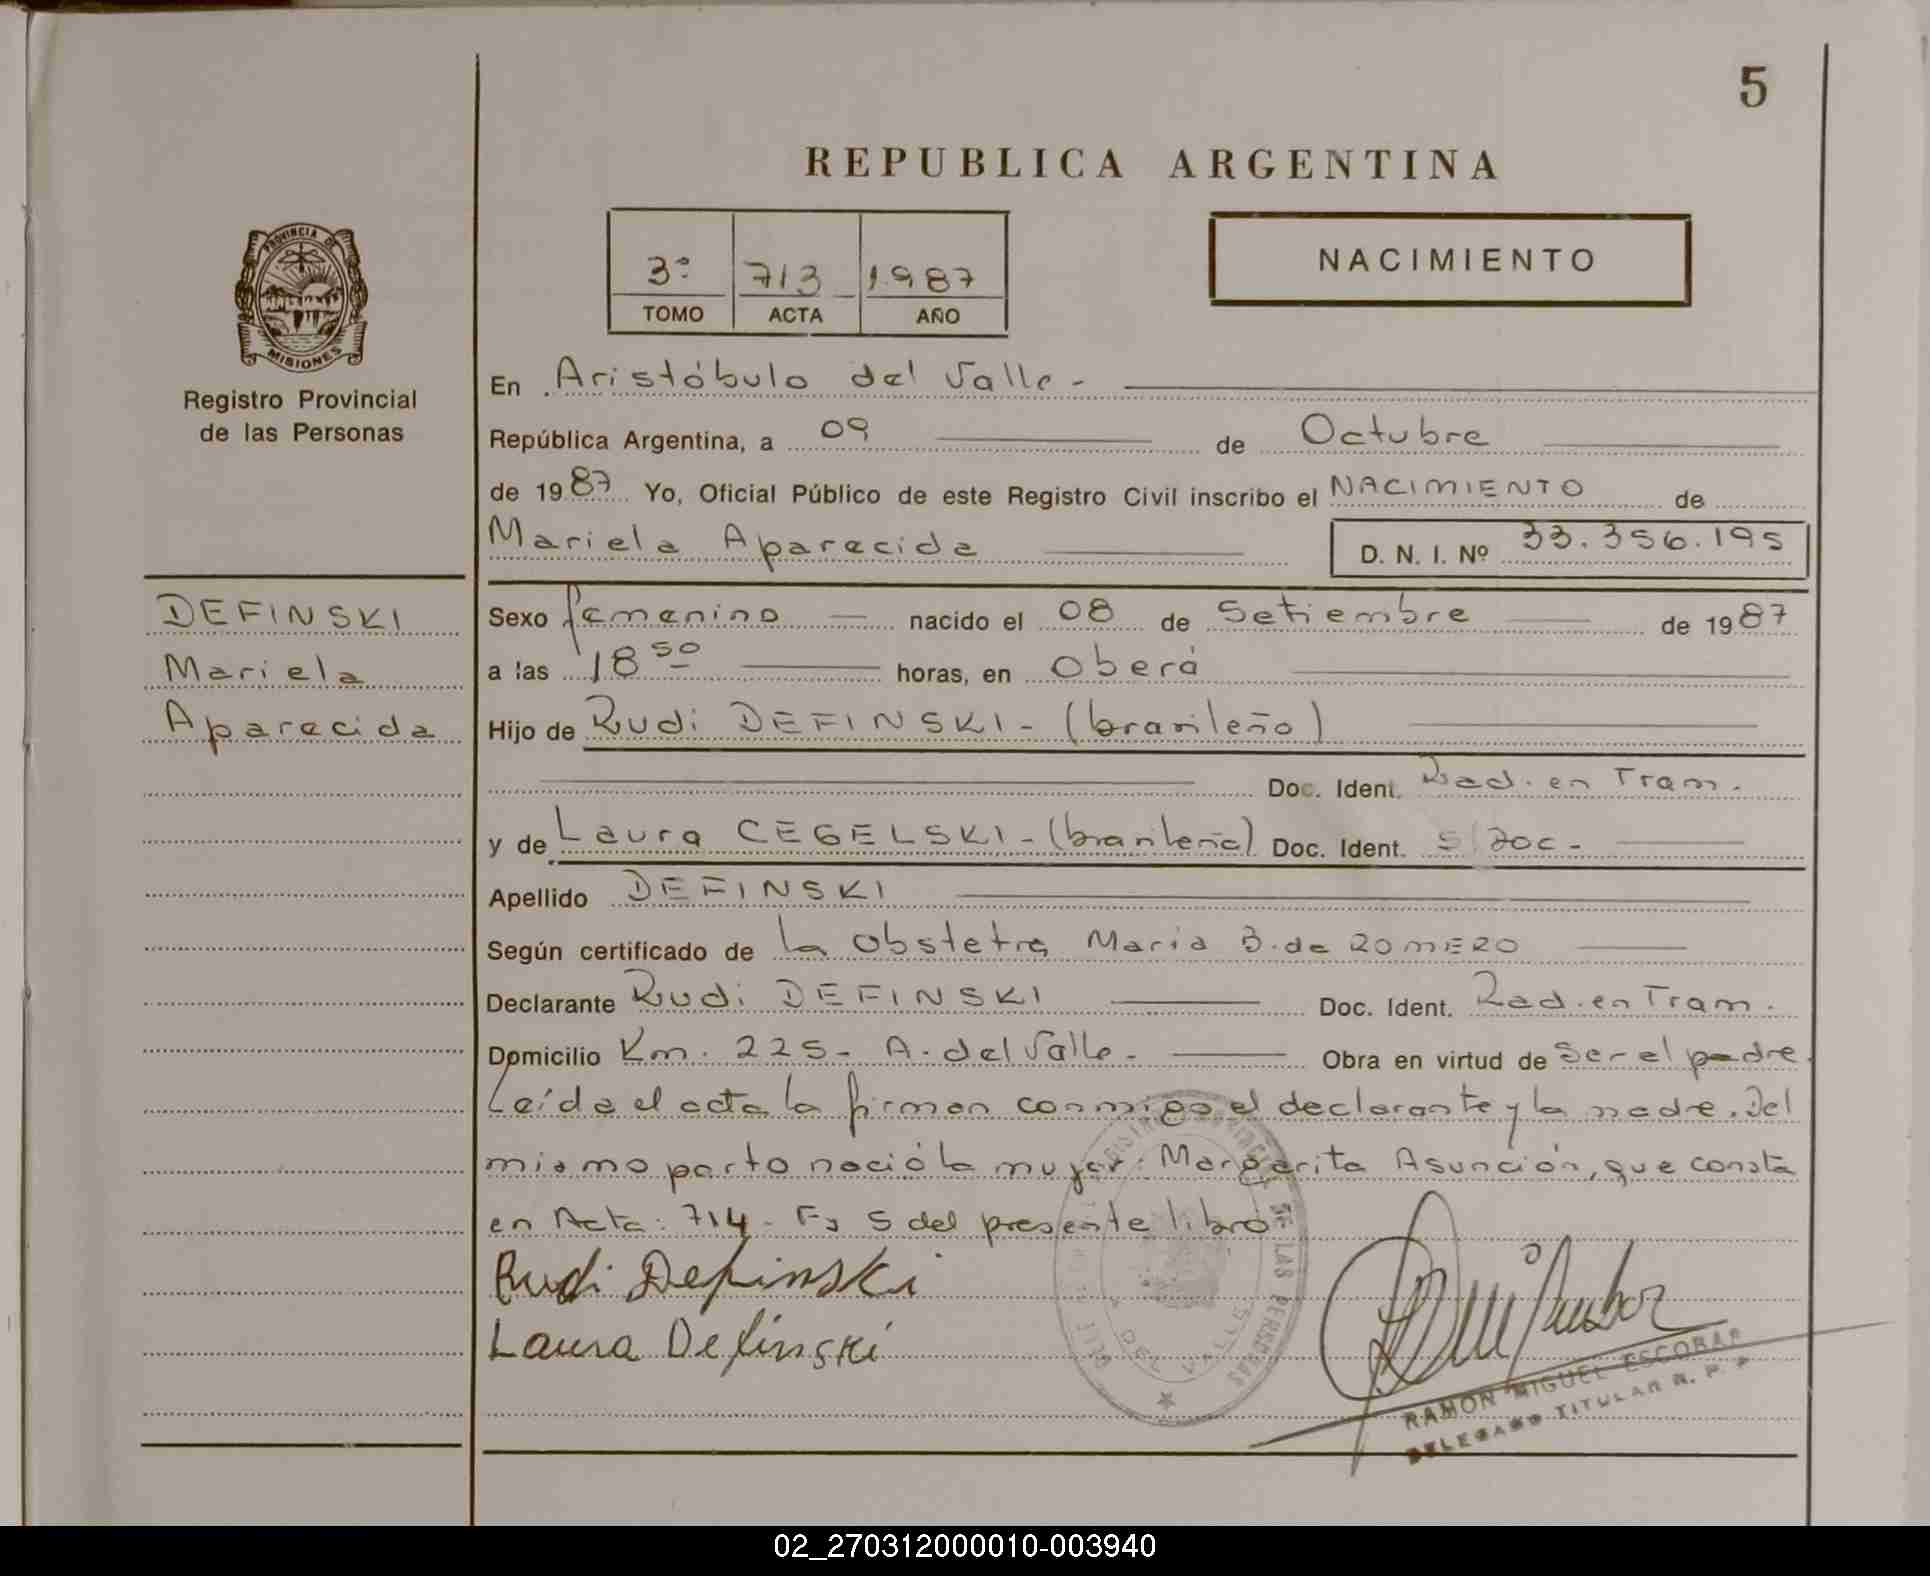 5
REPUBLICA ARGENTINA
PROVINCIA DE
MISIONES
Registro Provincial
de las Personas
3º 713 1.987
TOMO ACTA AÑO
NACIMIENTO
En Aristóbulo del Valle -
República Argentina, a 09 de Octubre
de 1987 Yo, Oficial Público de este Registro Civil inscribo el NACIMIENTO de
Mariela Aparecida D. N. I. Nº 33.356.195
DEFINSKI
Mariela
Aparecida
Sexo femenino nacido el 08 de Setiembre de 1987
a las 18 50 horas, en Oberá
Hijo de Rudi DEFINSKI - (brasileño)
Doc. Ident. Rad. en Tram.
y de Laura CEGELSKI - (brasileña) Doc. Ident. S/Doc -
Apellido DEFINSKI
Según certificado de la Obstetra Maria B. de ROMERO
Declarante Rudi DEFINSKI Doc. Ident. Rad. en Tram.
Domicilio Km. 225 - A. del Valle - Obra en virtud de Ser el padre.
Leída el acta la firman conmigo el declarante y la madre. Del
mismo parto nació la mujer: Margarita Asunción, que consta
en Acta: 714 - Fº 5 del presente libro
Rudi Definski
Laura Definski
DE LAS PERSONAS
DEL VALLE
RAMON MIGUEL ESCOBAR
DELEGADO TITULAR R. P. P.
02_270312000010-003940